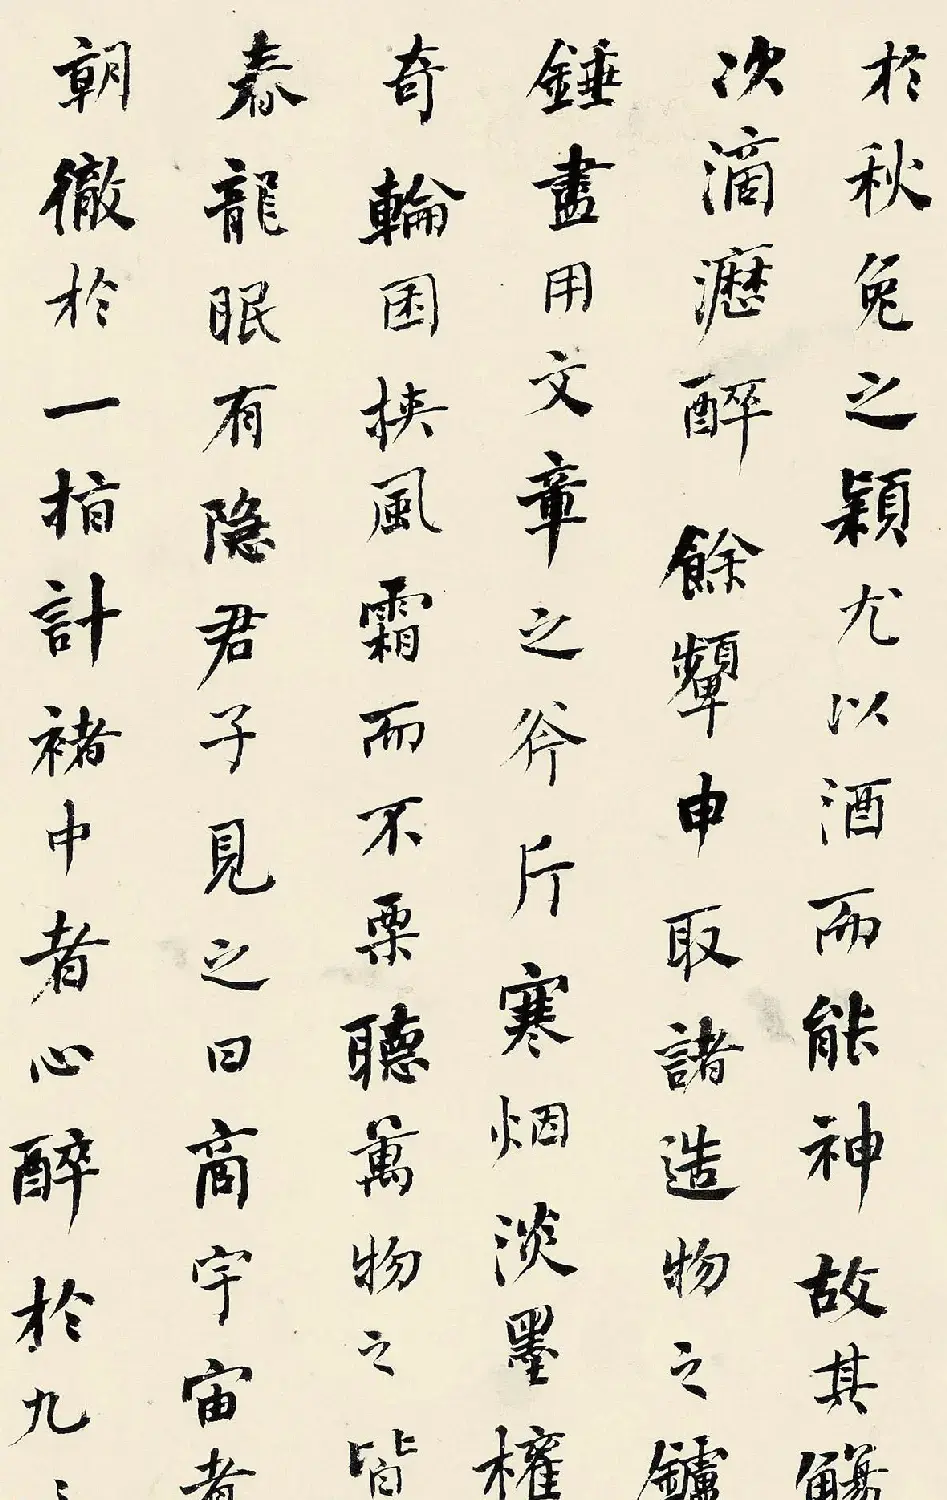 於秋兔之穎尤以酒而能神故其觴
次滴瀝醉餘顰申取諸造物之鑪
錘盡用文章之斧斤寒烟淡墨權
奇輪囷挾風霜而不栗聽萬物之皆
春龍眠有隐君子見之曰商宇宙者
朝徹於一指計褚中者心醉於九